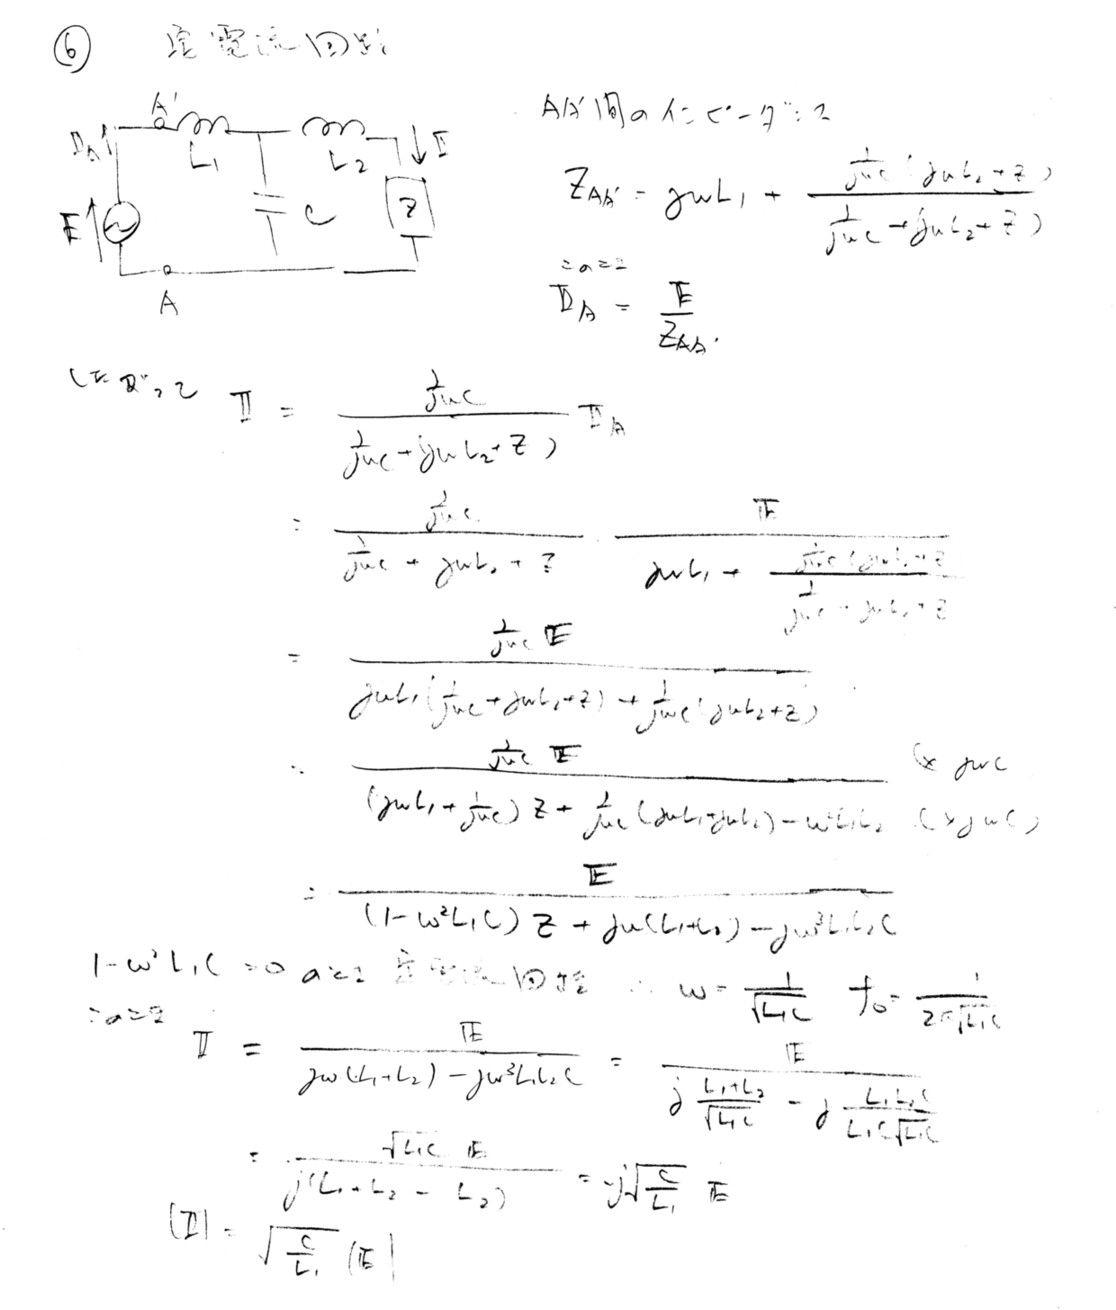 ⑥ 定電流回路
A'
I_A L₁ L₂ I
E C Z
A
AA'間のインピーダンス
Z_AA' = jωL₁ + \frac{\frac{1}{jωC}(jωL₂+Z)}{\frac{1}{jωC}+(jωL₂+Z)}
このとき
I_A = \frac{E}{Z_AA'}
I = \frac{\frac{1}{jωC}}{\frac{1}{jωC}+(jωL₂+Z)} I_A
= \frac{\frac{1}{jωC}}{\frac{1}{jωC}+jωL₂+Z} · \frac{E}{jωL₁+\frac{\frac{1}{jωC}(jωL₂+Z)}{\frac{1}{jωC}+jωL₂+Z}}
= \frac{\frac{1}{jωC}E}{jωL₁(\frac{1}{jωC}+jωL₂+Z)+\frac{1}{jωC}(jωL₂+Z)}
= \frac{\frac{1}{jωC}E}{(jωL₁+\frac{1}{jωC})Z+\frac{1}{jωC}(jωL₁+jωL₂)-ω²L₁L₂} (× jωC (×jωC)
= \frac{E}{(1-ω²L₁C)Z+jω(L₁+L₂)-jω³L₁L₂C}
1-ω²L₁C=0 のとき 定電流回路 ∴ ω=\frac{1}{\sqrt{L₁C}} f₀=\frac{1}{2π\sqrt{L₁C}}
このとき
I = \frac{E}{jω(L₁+L₂)-jω³L₁L₂C} = \frac{E}{j\frac{L₁+L₂}{\sqrt{L₁C}}-j\frac{L₁L₂C}{L₁C\sqrt{L₁C}}}
= \frac{\sqrt{L₁C} E}{j(L₁+L₂-L₂)} = -j\sqrt{\frac{C}{L₁}} E
|I| = \sqrt{\frac{C}{L₁}} |E|